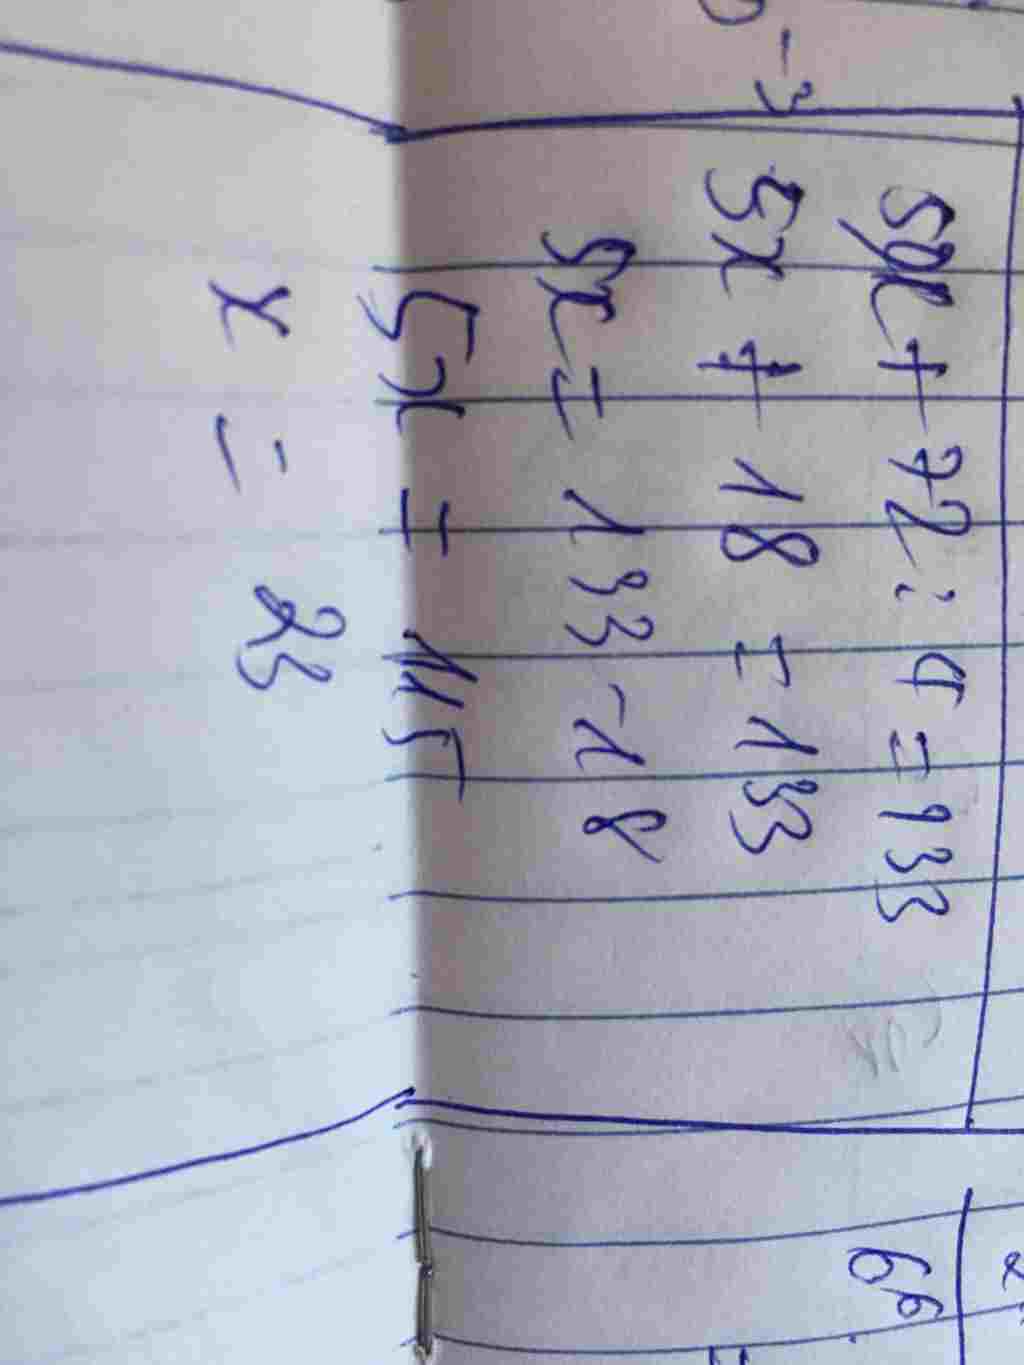 5x + 72 : 4 = 133
5x + 18 = 133
5x = 133 - 18
5x = 115
x = 23
66